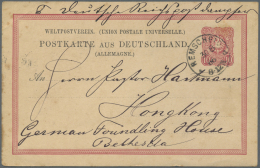 Deutsche Reichspostdampfer
WELTPOSTVEREIN. (UNION POSTALE UNIVERSELLE.)
POSTKARTE AUS DEUTSCHLAND.
(ALLEMAGNE.)
REMSCHEID
An Herrn Pastor Hartmann
Hongkong
German Foundling House
Bethesda